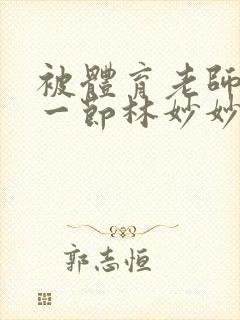 被體育老師
一節林妙妙
郭志恒